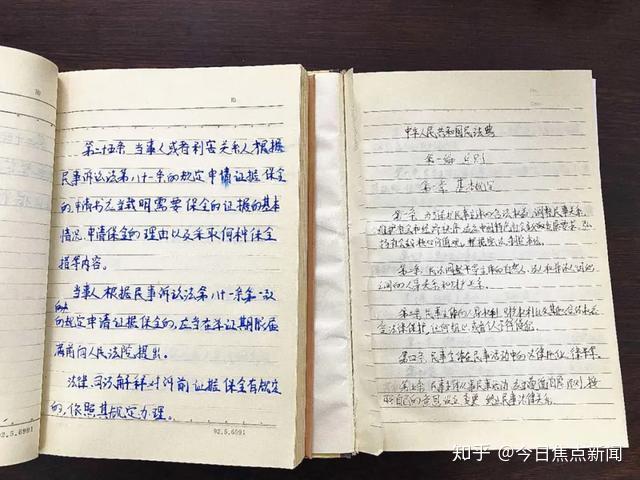 第二十五条 当事人或者利害关系人根据
民事诉讼法第八十一条的规定申请证据保全
的,申请书应当载明需要保全的证据的基本
情况、申请保全的理由以及采取何种保全
措施等内容。
当事人根据民事诉讼法第八十一条第一款
的规定申请证据保全的,应当在举证期限届
满前向人民法院提出。
法律、司法解释对诉前证据保全有规定
的,依照其规定办理。
92.5.6591
中华人民共和国民法典
第一编 总则
第一章 基本规定
第一条 为了保护民事主体的合法权益,调整民事关系,
维护社会和经济秩序,适应中国特色社会主义发展要求,弘
扬社会主义核心价值观,根据宪法,制定本法。
第二条 民法调整平等主体的自然人、法人和非法人组织
之间的人身关系和财产关系。
第三条 民事主体的人身权利、财产权利以及其他合法权益
受法律保护,任何组织或者个人不得侵犯。
第四条 民事主体在民事活动中的法律地位一律平等。
第五条 民事主体从事民事活动,应当遵循自愿原则,按
照自己的意思设立、变更、终止民事法律关系。
92.5.6591
知乎 @今日焦点新闻